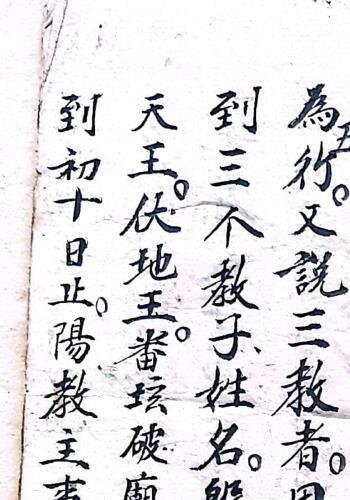 為行。又說三教者。
到三个教子姓名。
天王。伏地王。番坛破廟
到初十日止。陽教主